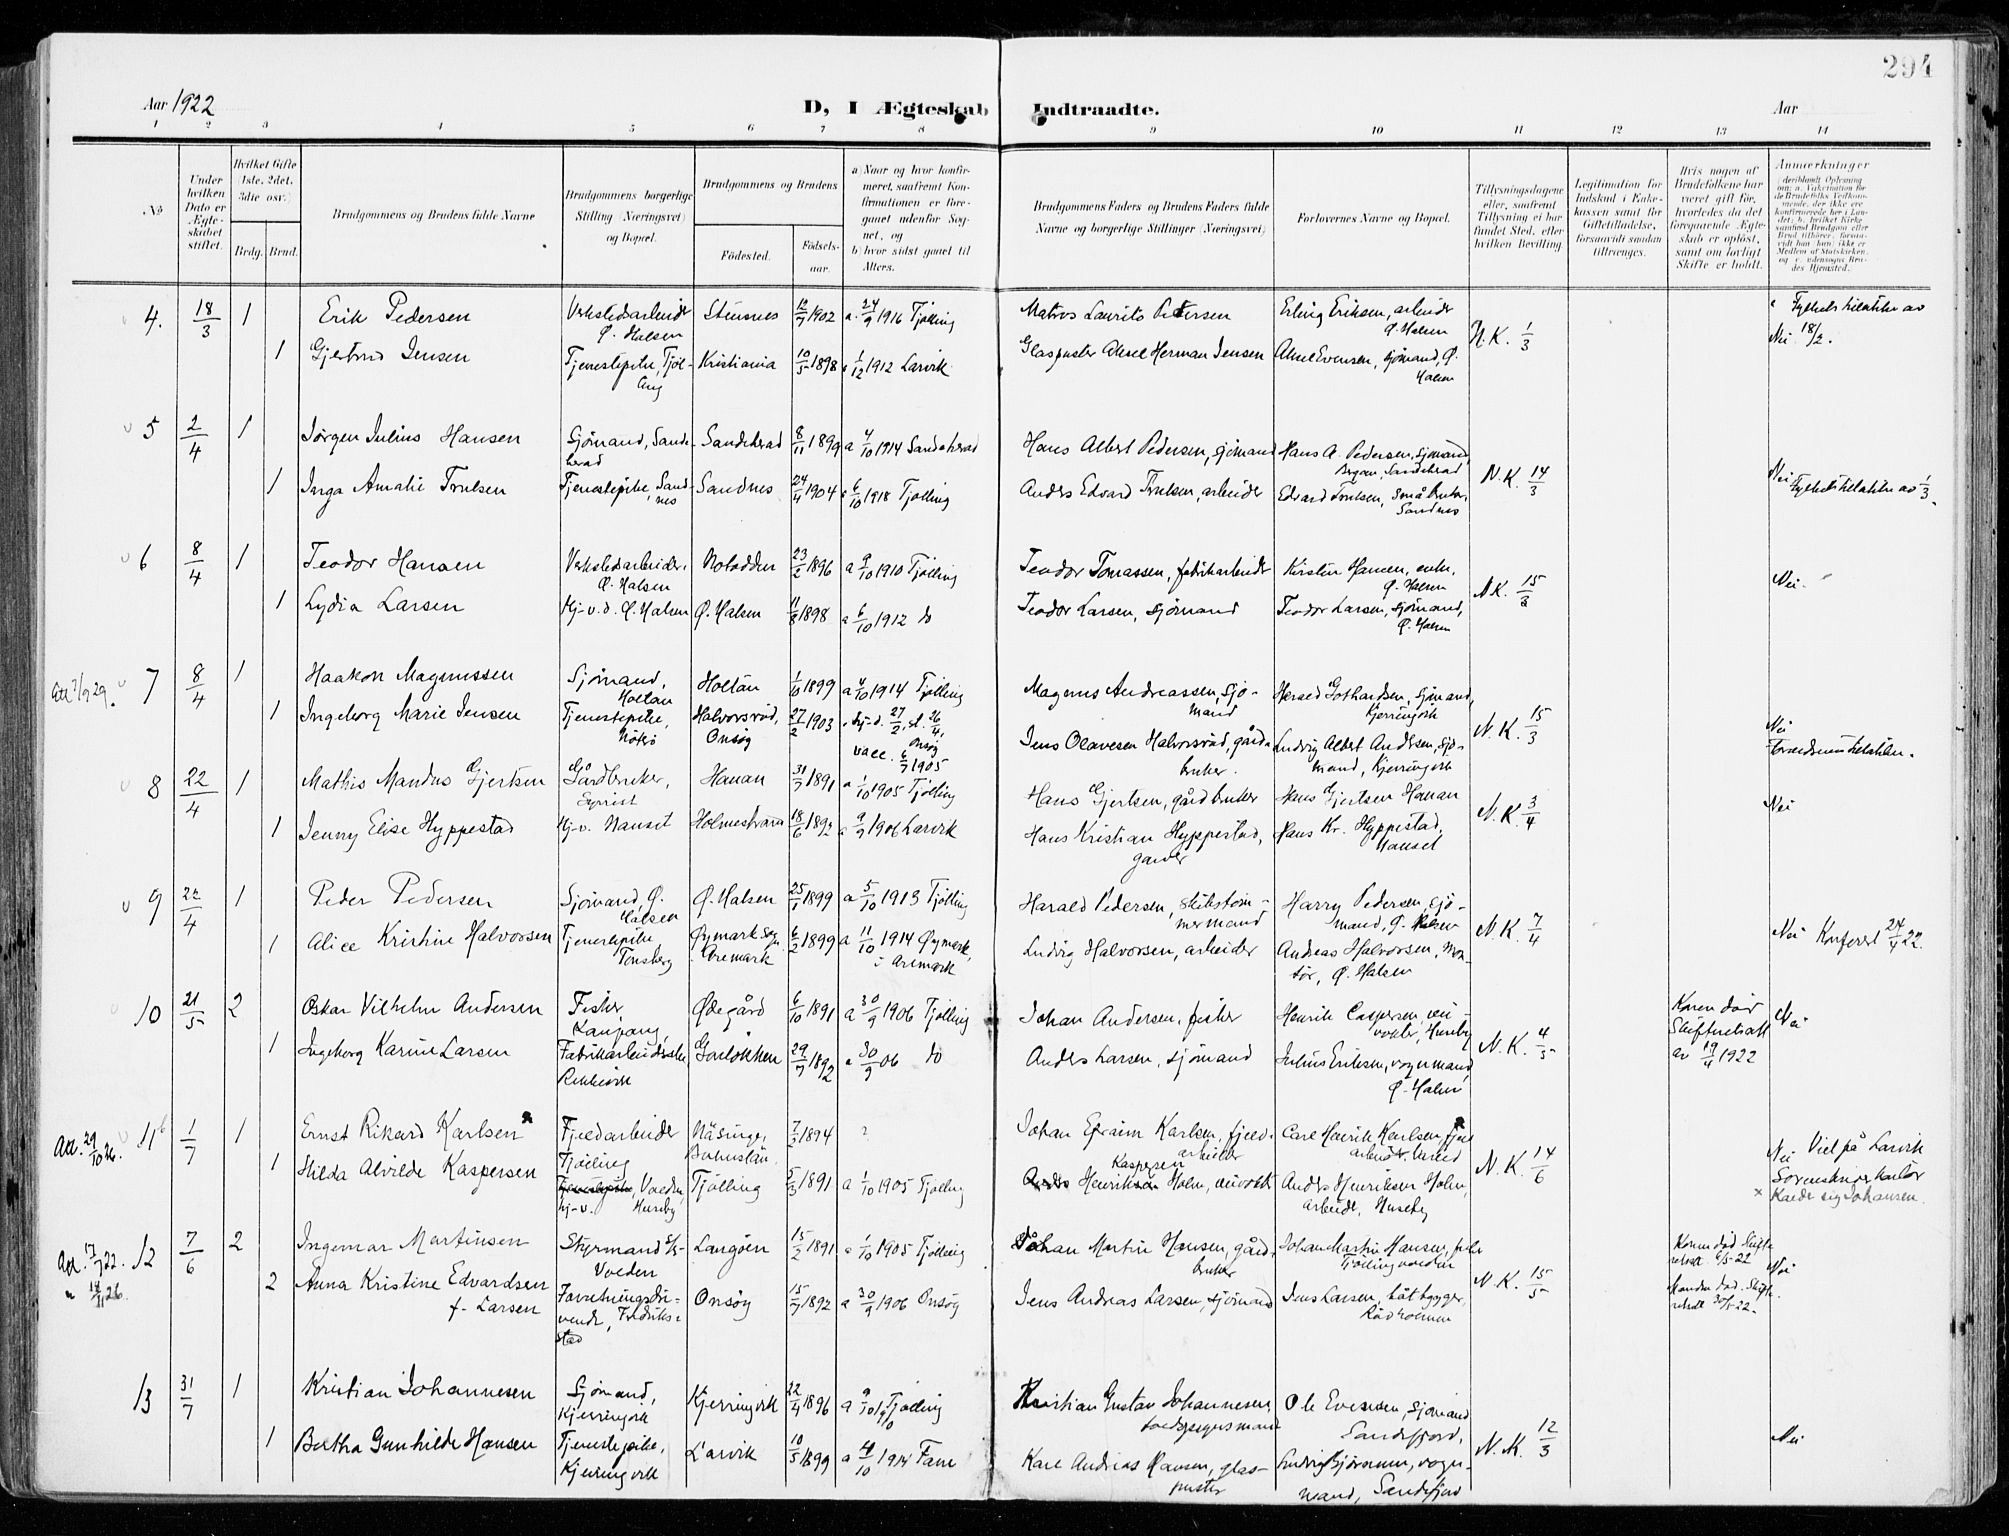 294
Aar 1922
D, I Ægteskab Indtraadte.
Aar
1 2 3 4 5 6 7 8 9 10 11 12 13 14
No
Under hvilken Dato er Ægteskabet stiftet.
Hvilket Gifte (1ste, 2det, 3die osv.)
Brdg. Brud.
Brudgommens og Brudens fulde Navne
Brudgommens borgerlige Stilling (Næringsvei) og Bopæl.
Brudgommens og Brudens
Fødested.
Fødselsaar.
a) Naar og hvor konfirmeret, saafremt Konfirmationen er foregaaet udenfor Sognet, og
b) hvor sidst gaaet til Alters.
Brudgommens Faders og Brudens Faders fulde Navne og borgerlige Stillinger (Næringsvei)
Forlovernes Navne og Bopæl.
Tillysningsdagene eller, saafremt Tillysning ei har fundet Sted, efter hvilken Bevilling.
Legitimation for Indskud i Enkekassen samt for Giftetilladelse, forsaavidt saadan tiltrænges.
Hvis nogen af Brudefolkene har været gift før, hvorledes da det foregaaende Ægteskab er opløst, samt om lovligt Skifte er holdt.
Anmærkninger
4. 18/3 1 Erik Pedersen Verkstedsarbeider Ø. Halsen Stensnes 12/7 1902 a. 24/9 1916 Tjølling Matros Laurits Pedersen Erling Eriksen, arbeider Ø. Halsen N.K. 1/3
1 Gjertrud Jensen Tjenestepike, Tjølling Kristiania 10/5 1898 a 1/12 1912 Larvik Glaspuster Aksel Herman Jensen Aksel Evensen, sjømand, Ø. Halsen Nei 18/2.
5 2/4 1 Jørgen Julius Hansen Sjømand, Sandeherad Sandeherad 8/11 1899 a 4/10 1914 Sandeherad Hans Albert Pedersen, sjømand Hans A. Pedersen, sjømand, Sandeherad
1 Inga Amalie Trulsen Tjenestepike, Sandnes Sandnes 24/4 1904 a 6/10 1918 Tjølling Anders Edvard Trulsen, arbeider Edvard Trulsen, småbruker, Sandnes N.K. 14/3 Nei
6 8/4 1 Teodor Hansen Verkstedsarbeider, Ø. Halsen Notodden 23/2 1896 a 9/10 1910 Tjølling Teodor Tomassen, fabrikarbeider Kirstin Hansen, enke, Ø. Halsen N.K. 15/3 Nei.
1 Lydia Larsen Hj-v.d. Ø. Halsen Ø. Halsen 11/8 1898 a 6/10 1912 do Teodor Larsen, sjømand Teodor Larsen, sjømand, Ø. Halsen
7 8/4 1 Haakon Magnussen Sjømand, Holtan Holtan 1/10 1899 a 4/10 1914 Tjølling Magnus Andreassen, sjømand Gothardsen, sjømand, Kjerringvik
1 Ingeborg Marie Jensen Tjenestepike, Nøterø Halvorsrød, Onsøy 27/2 1903 Onsøy vacc. 6/7 1905 Jens Olavesen Halvorsrød, gårdbruker. Ludvig Albert Andersen, sjømand, Kjerringvik N.K. 15/3 Nei
8 22/4 1 Mathis Mandus Gjertsen Gårdbruker, Hauan 31/7 1891 a 1/10 1905 Tjølling Hans Gjertsen, gårdbruker Hans Gjertsen Hauan N.K. 3/4 Nei
1 Jenny Elise Hyppestad Hj-v. Nanset Holmestrand 18/6 1892 a 9/9 1906 Larvik Hans Kristian Hyppestad, garver Hans Kr. Hyppestad, Nanset
9 22/4 1 Peder Pedersen Sjømand, Ø. Halsen Ø. Halsen 25/1 1899 a 5/10 1913 Tjølling Harald Pedersen, skibstømmermand Harry Pedersen, sjømand, Ø. Halsen N.K. 7/4
1 Alice Kristine Halvorsen Tjenestepike, Tønsberg Øymark sogn, Aremark 6/2 1899 a 11/10 1914 Øymark i Aremark Ludvig Halvorsen, arbeider Andreas Halvorsen, montør, Ø. Halsen Nei 24/4 22.
10 21/5 2 Oskar Vilhelm Andersen Fisker, Kaupang Ødegård 6/10 1891 a 30/9 1906 Tjølling Johan Andersen, fisker Henrik Caspersen, veivokter, Huseby Konen død Skifteattest av 19/4 1922 Nei
1 Ingeborg Karine Larsen Fabrikarbeiderske, Rekkevik Gonløkken 29/7 1892 a 30/9 06 do Anders Larsen, sjømand Julius Eriksen, vognmand, Ø. Halsen N.K. 4/5
Att. 29/10 26. 11 1/7 1 Ernst Rikard Karlsen Fjeldarbeider Tjølling Näsinge, Bohuslän 7/3 1894 ? Johan Efraim Karlsen, fjeldarbeider Carl Henrik Karlsen, fjeldarbeider
1 Hilda Alvilde Kaspersen Tjenestepike, Huseby hj-v. Tjølling 5/3 1891 a 1/10 1905 Tjølling Kaspersen Anders Henriksen Holm, veivokter Anders Henriksen Holm, arbeider, Huseby N.K. 14/6 Nei Viet på Larvik Sorenskriverkontor
× Kaldte sig Johansen.
12 7/6 2 Ingemar Martinsen Styrmand Voeden Langøen 15/2 1891 a 1/10 1905 Tjølling Johan Martin Hansen, gårdbruker Johan Martin Hansen, Tjøllingvolden Konen død Nei
2 Anna Kristine Edvardsen f. Larsen Forretningsdrivende, Fredrikstad Onsøy 15/7 1892 a 30/9 1906 Onsøy Jens Andreas Larsen, sjømand Jens Larsen, båtbygger, N.K. 15/5 Manden død.
13 31/7 1 Kristian Johannesen Sjømand, Kjerringvik Kjerringvik 22/4 1896 a 9/10 1910 Tjølling Kristian Gustav Johannesen, Ole Evensen, sjømand Sandefjord,
1 Bertha Gunhilde Hansen Tjenestepike, Kjerringvik Larvik 10/5 1899 a 4/10 1914 Fane Karl Andreas Hansen, glaspuster Ludvig Bjørnum, vognmand, Sandefjord N.K. 12/3 Nei